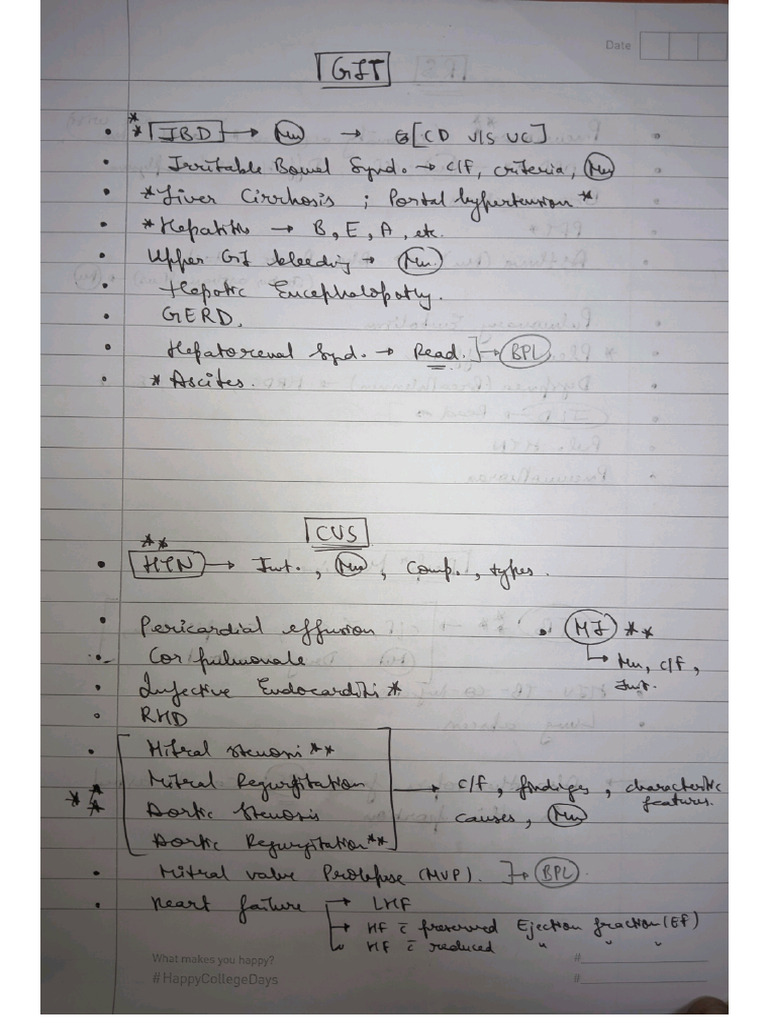 Date
GIT
** IBD → Mn → [CD V/S UC]
• Irritable Bowel Synd. → C/F, criteria, Mn
• *Liver Cirrhosis ; Portal hypertension*
• *Hepatitis → B, E, A, etc.
• Upper GI bleeding → Mn.
• Hepatic Encephalopathy.
• GERD.
• Hepatorenal Synd. → Read. ]→ BPL
• *Ascites.
CVS
**
• HTN → Int., Mn, Comp., types.
• Pericardial effusion • MI **
• Cor pulmonale → Mn, C/F,
• Infective Endocarditi * Int.
• RHD
• Mitral stenosi **
Mitral Regurgitation → C/F, findings, characteristic features.
*** Aortic Stenosis causes, Mn
Aortic Regurgitation **
• Mitral valve Prolapse (MVP). ]→ BPL
• Heart failure → LHF
→ HF c̄ preserved Ejection fraction (EF)
→ HF c̄ reduced " " "
What makes you happy? #
#HappyCollegeDays #